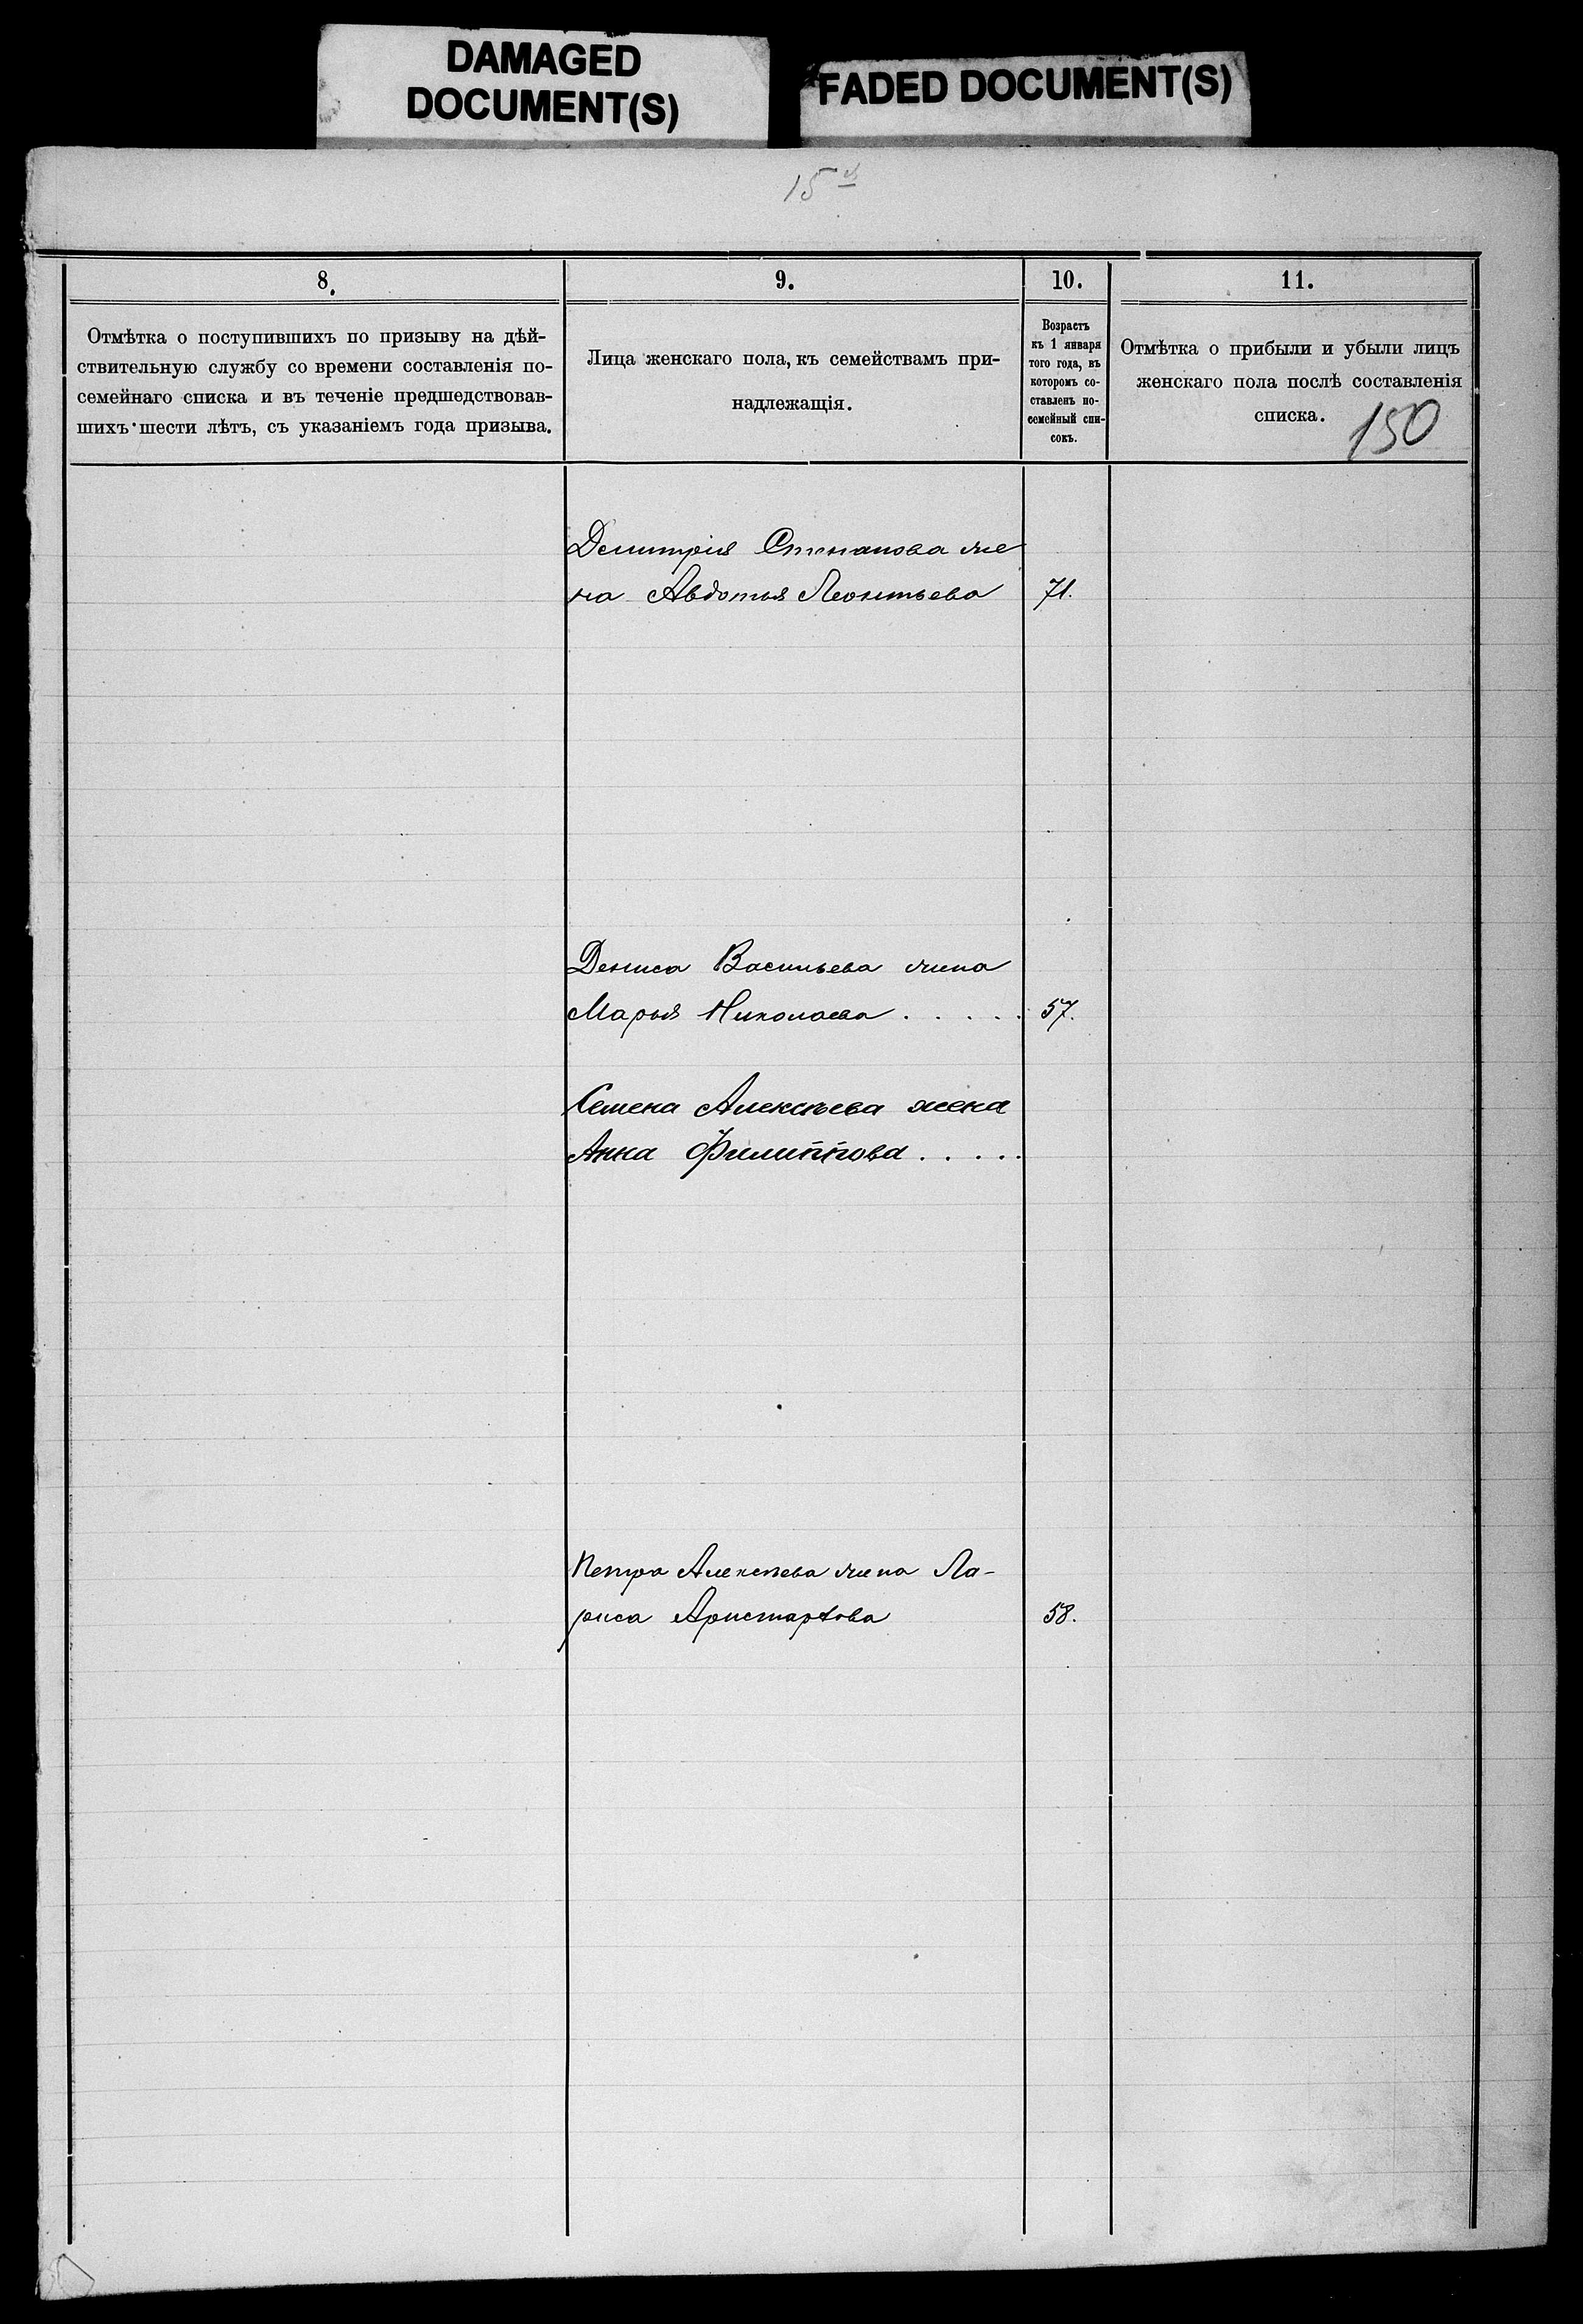 DAMAGED
DOCUMENT(S)
FADED DOCUMENT(S)
15
8.
Отмѣтка о поступившихъ по призыву на дѣй-
ствительную службу со времени составленія по-
семейнаго списка и въ теченіе предшедствовав-
шихъ шести лѣтъ, съ указаніемъ года призыва.
9.
Лица женскаго пола, къ семействамъ при-
надлежащія.
10.
Возрастъ
къ 1 января
того года, въ
которомъ со-
ставленъ по-
семейный спи-
сокъ.
11.
Отмѣтка о прибыли и убыли лицъ
женскаго пола послѣ составленія
списка.
150
Демитрія Степанова же
на Авдотья Леонтьева 71.
Дениса Васильева жена
Марья Николаева . . . . . 57.
Семена Алексѣева жена
Анна Филиппова . . . . .
Петра Алексѣева жена Ла-
риса Аристархова 58.